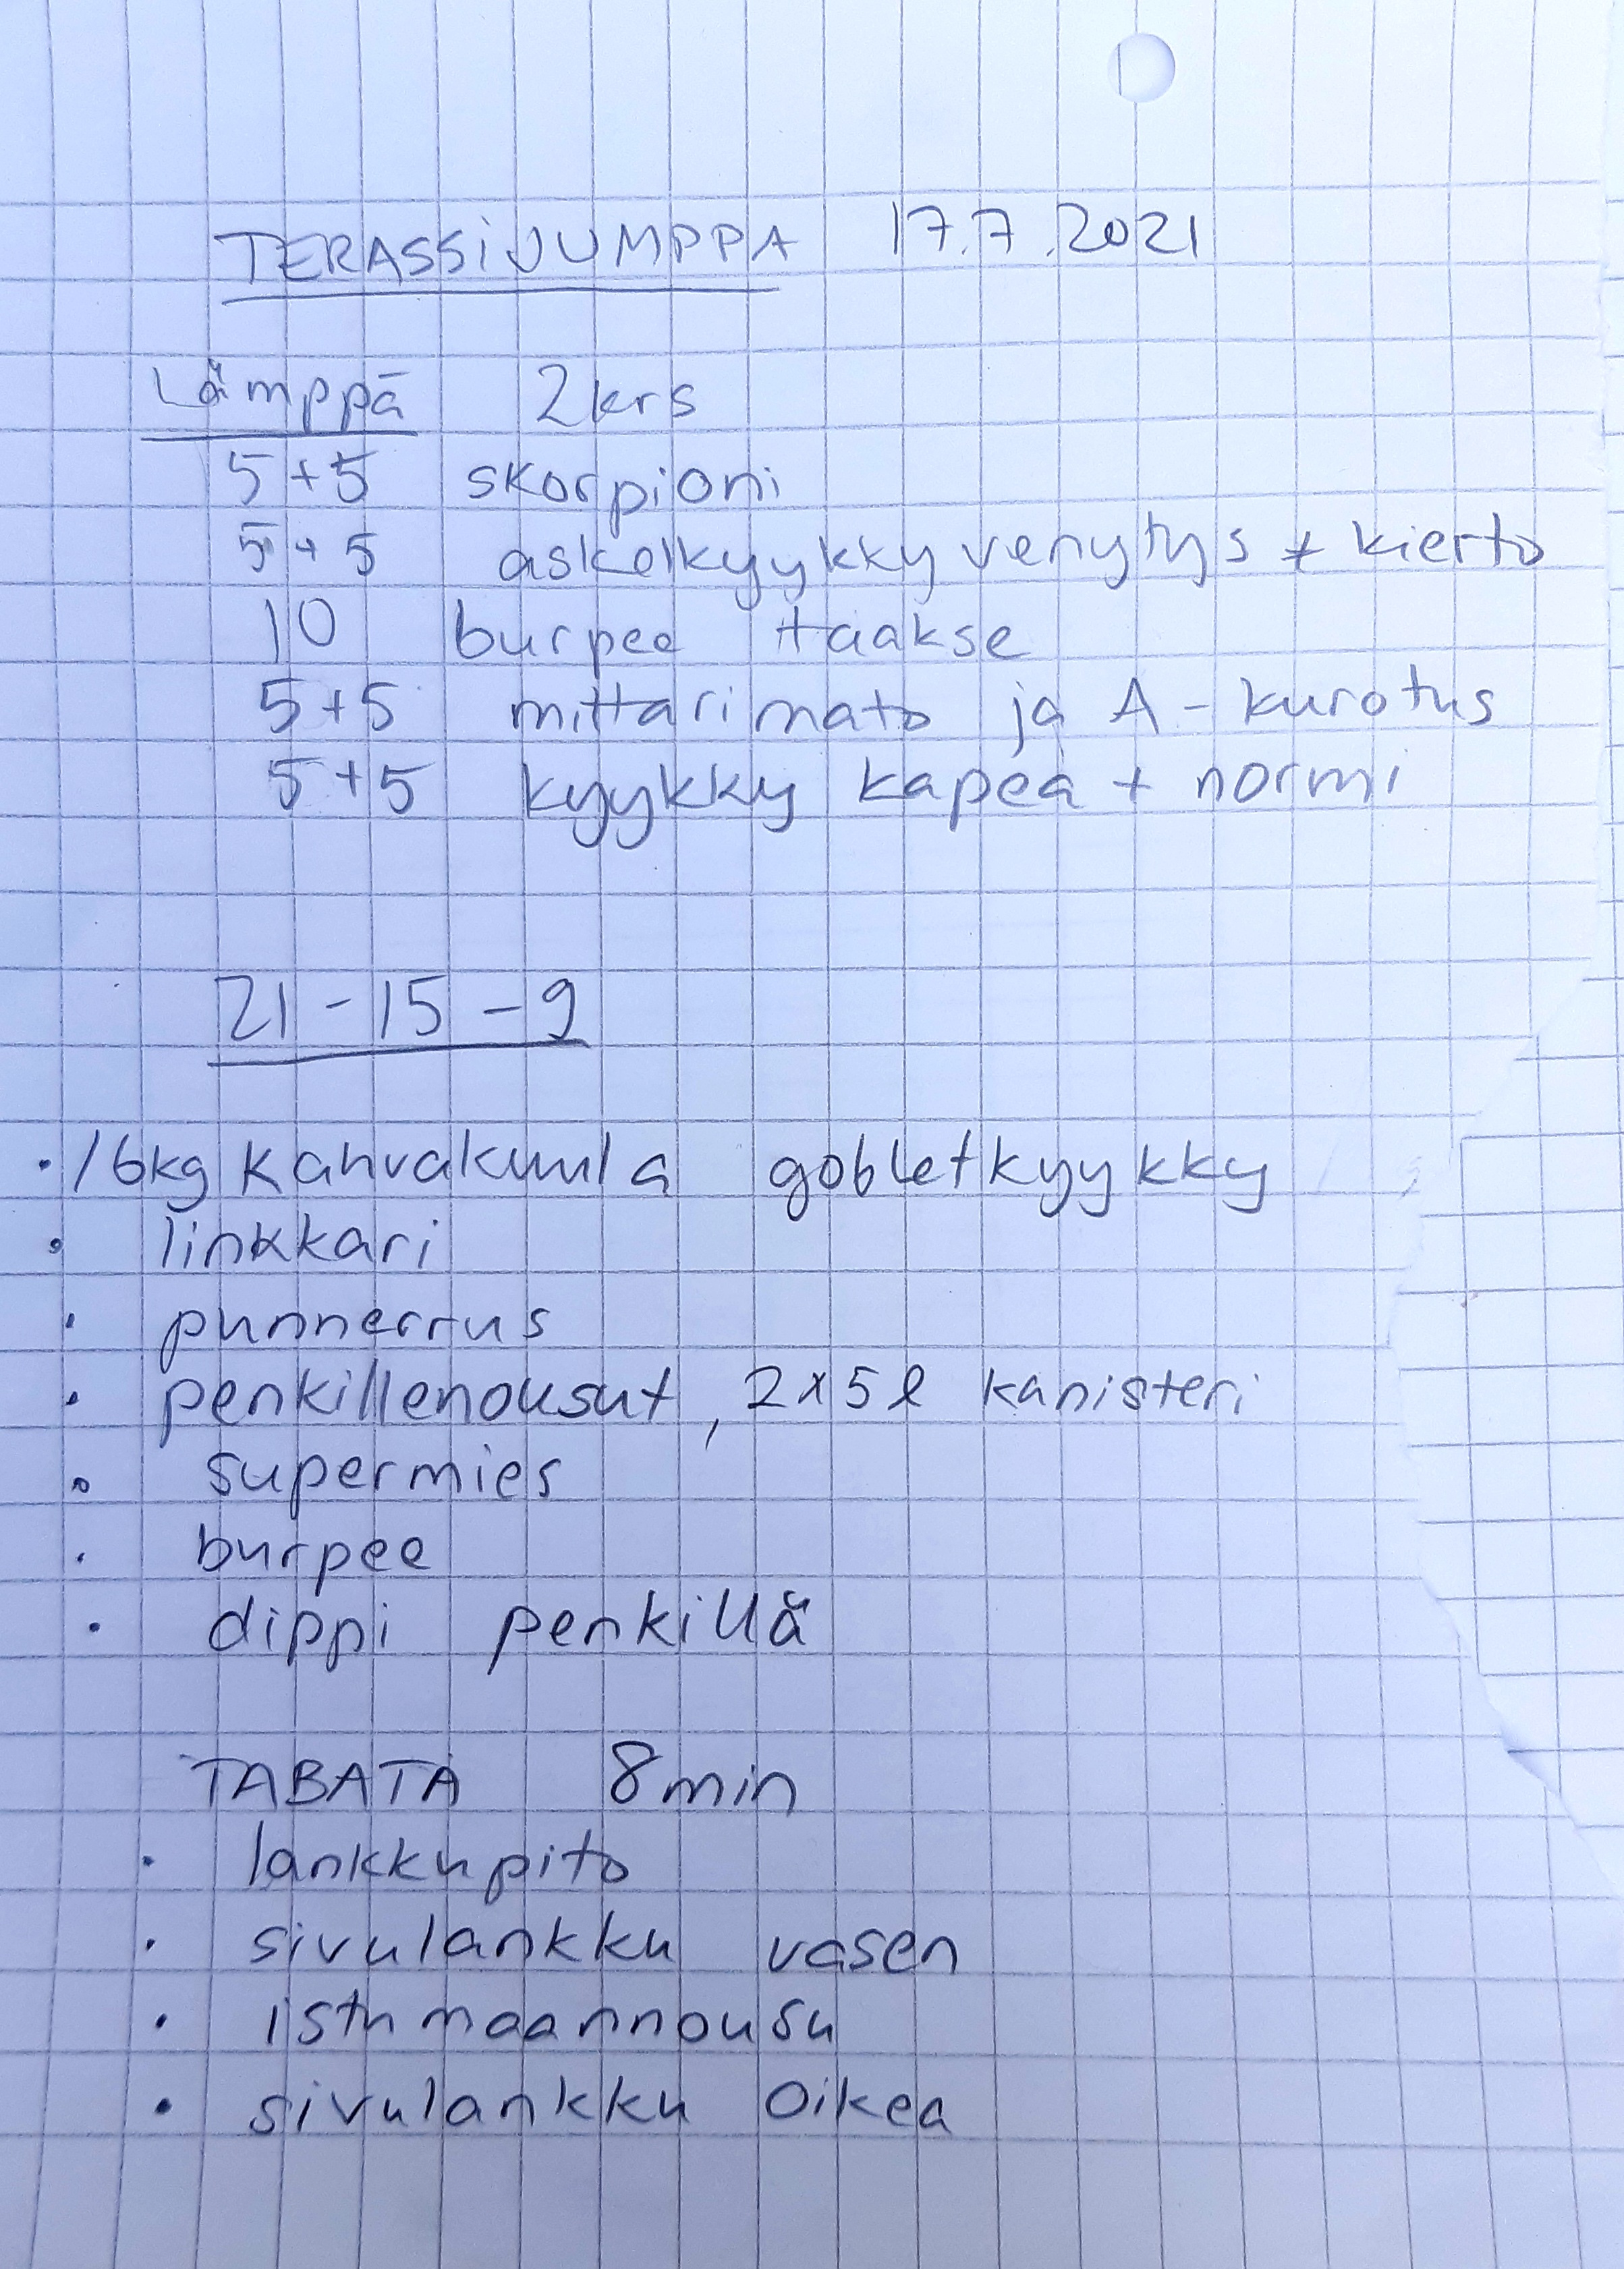 TERASSiJUMPPA 17.7.2021
Lämppä 2krs
5+5 skorpioni
5+5 askelkyykkyvenytys + kierto
10 burpee taakse
5+5 mittarimato ja A-kurotus
5+5 kyykky kapea + normi
21-15-9
• 16kg kahvakuula gobletkyykky
• linkkari
• punnerrus
• penkillenousut, 2x5l kanisteri
• supermies
• burpee
• dippi penkillä
TABATA 8min
• lankkupito
• sivulankku vasen
• istumaannousu
• sivulankku oikea